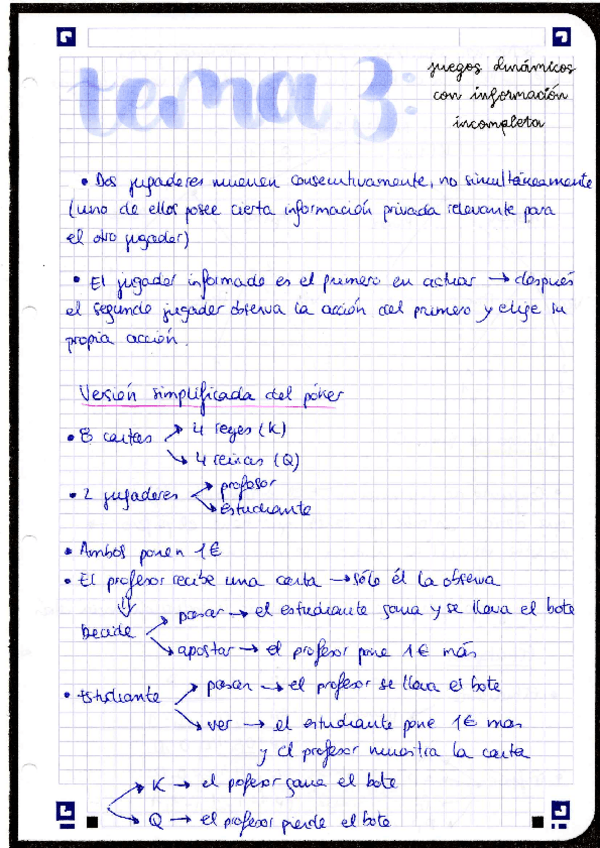 tema 3:
juegos dinámicos
con información
incompleta
• Dos jugadores mueven consecutivamente, no simultáneamente
(uno de ellos posee cierta información privada relevante para
el otro jugador)
• El jugador informado es el primero en actuar → después
el segundo jugador observa la acción del primero y elige su
propia acción.
Versión simplificada del póker
• 8 cartas → 4 reyes (K)
→ 4 reinas (Q)
• 2 jugadores → profesor
→ estudiante
• Ambos ponen 1€
• El profesor recibe una carta → sólo él la observa
Decide → pasar → el estudiante gana y se lleva el bote
→ apostar → el profesor pone 1€ más
• Estudiante → pasar → el profesor se lleva el bote
→ ver → el estudiante pone 1€ mas
y el profesor muestra la carta
→ K → el profesor gana el bote
→ Q → el profesor pierde el bote